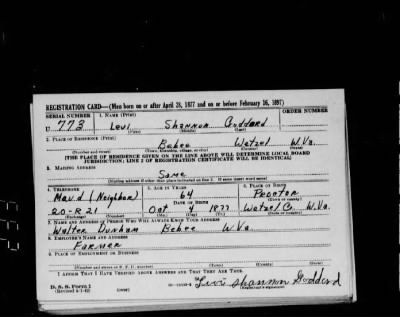 REGISTRATION CARD—(Men born on or after April 28, 1877 and on or before February 16, 1897)
SERIAL NUMBER 1. NAME (Print) ORDER NUMBER
U 773 Levi Shannon Goddard
(First) (Middle) (Last)
2. PLACE OF RESIDENCE (Print)
Bebee Wetzel W. Va.
(Number and street) (Town, township, village, or city) (County) (State)
[THE PLACE OF RESIDENCE GIVEN ON THE LINE ABOVE WILL DETERMINE LOCAL BOARD
JURISDICTION; LINE 2 OF REGISTRATION CERTIFICATE WILL BE IDENTICAL]
3. MAILING ADDRESS
Same
[Mailing address if other than place indicated on line 2. If same insert word same]
4. TELEPHONE 5. AGE IN YEARS 6. PLACE OF BIRTH
Maud (Neighbor) 64 Proctor
DATE OF BIRTH (Town or county)
20-R21 Oct 4 1877 Wetzel Co. W. Va.
(Exchange) (Number) (Mo.) (Day) (Yr.) (State or country)
7. NAME AND ADDRESS OF PERSON WHO WILL ALWAYS KNOW YOUR ADDRESS
Walter Durham Bebee W. Va.
8. EMPLOYER'S NAME AND ADDRESS
Farmer
9. PLACE OF EMPLOYMENT OR BUSINESS
(Number and street or R. F. D. number) (Town) (County) (State)
I AFFIRM THAT I HAVE VERIFIED ABOVE ANSWERS AND THAT THEY ARE TRUE.
D. S. S. Form 1
(Revised 4-1-42) (over) Levi Shannon Goddard
(Registrant's signature)